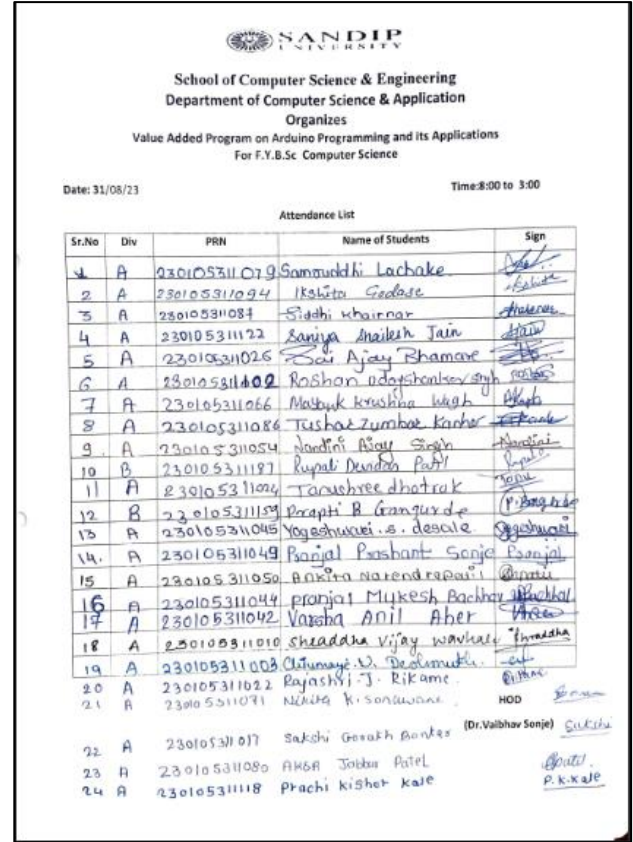 SANDIP
UNIVERSITY
School of Computer Science & Engineering
Department of Computer Science & Application
Organizes
Value Added Program on Arduino Programming and its Applications
For F.Y.B.Sc Computer Science
Date: 31/08/23 Time:8:00 to 3:00
Attendance List
Sr.No Div PRN Name of Students Sign
1 A 230105311079 Samruddhi Lachake
2 A 230105311094 Ikshita Godase
3 A 230105311087 Siddhi Khairnar
4 A 230105311122 Saniya Shailesh Jain
5 A 230105311026 Sai Ajay Bhamare
6 A Roshan
7 A 230105311066 Mayuk Krushna Wagh
8 A 230105311086 Tushar Zumbar Kanhor
9. A 230105311054 Nandini Ajay Singh Nandini
10 B 230105311187 Rupali Devidas Patil
11 A Tanushree dhotrak
12 B 230105311159 Prapti B Gangurde
13 A 230105311045 Yogeshwari .S. desale Yogeshwari
14. A 230105311049 Pranjal Prashant Sonje Pranjal
15 A 230105311050 Ankita Narendra patil
16 A 230105311044 pranjal Mukesh Bachhav
17 A 230105311042 Varsha Anil Aher
18 A 230105311010 Shraddha Vijay wavhale Shraddha
19 A 230105311003 Deshmukh.
20 A 230105311022 Rajashri .J. Rikame
21 A 230105311071 Nikita K. Sonawane HOD
(Dr.Vaibhav Sonje) Sakshi
22 A 230105311017 Sakshi Gorakh Bankar
23 A 230105311080 AKSA Jabbar Patel
24 A 230105311118 Prachi Kishor Kale P.K.Kale